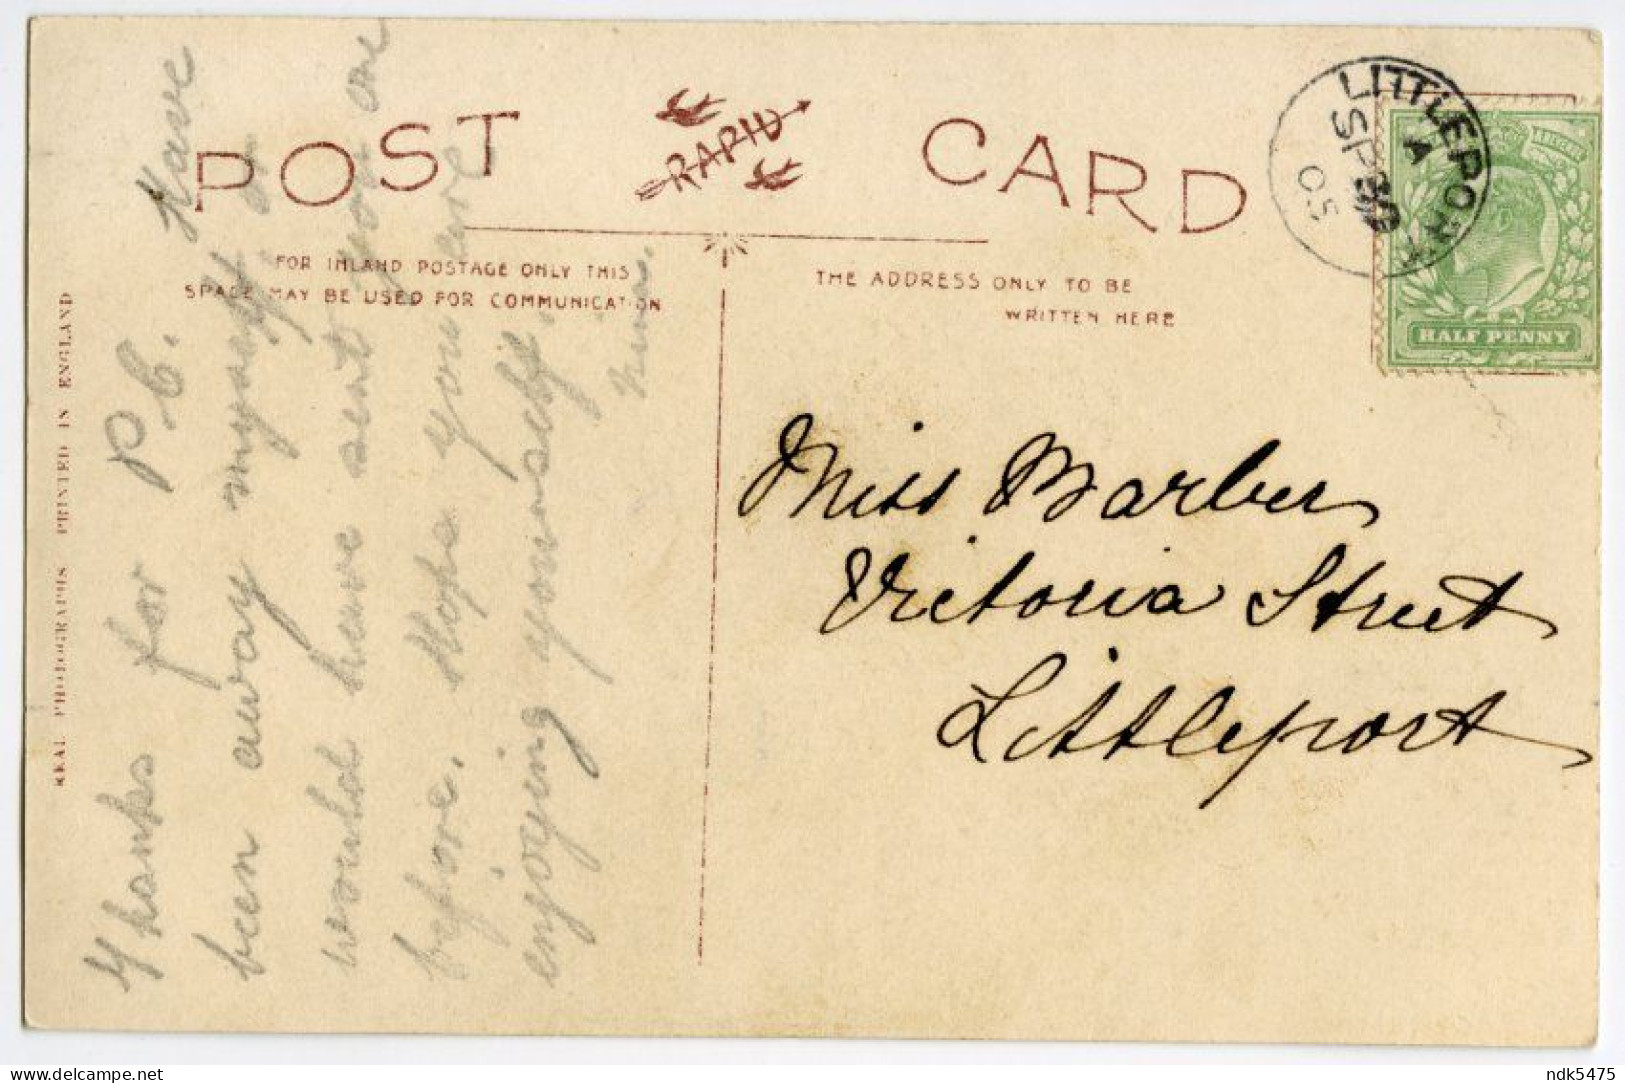 POST CARD
RAPID
FOR INLAND POSTAGE ONLY THIS
SPACE MAY BE USED FOR COMMUNICATION
THE ADDRESS ONLY TO BE
WRITTEN HERE
REAL PHOTOGRAPHS PRINTED IN ENGLAND
LITTLEPORT
A
SP 30
05
HALF PENNY
Thanks for P.C. Have
been away myself or
would have sent you one
before. Hope you are
enjoying yourself.
Miss Barber
Victoria Street
Littleport
delcampe.net
ndk5475